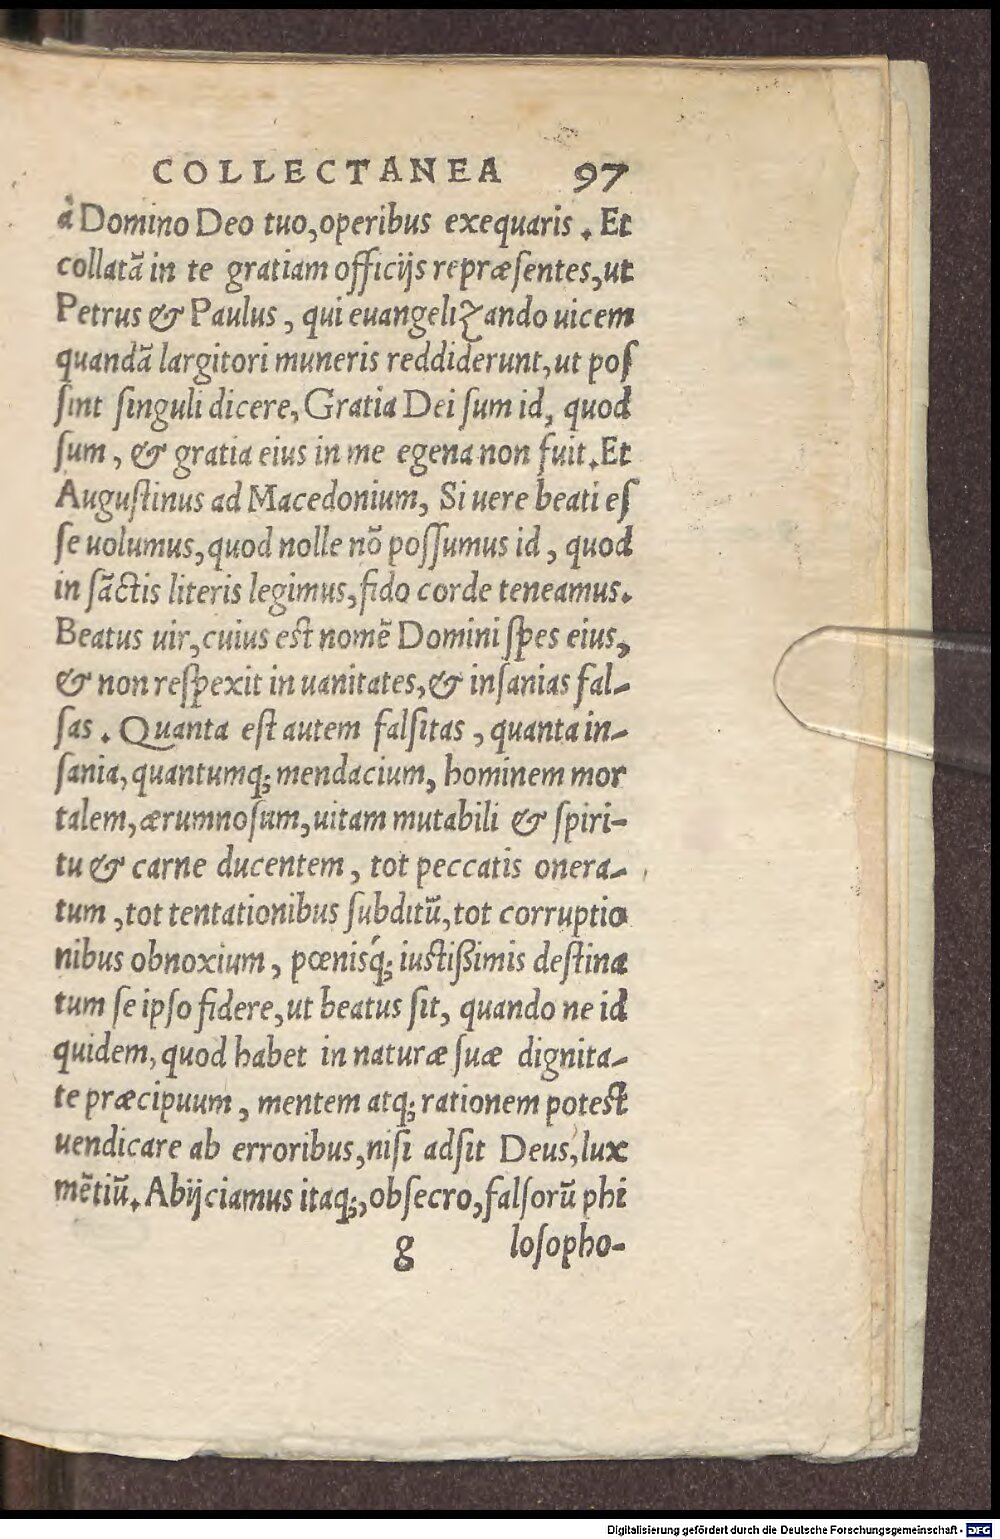 COLLECTANEA 97
à Domino Deo tuo, operibus exequaris. Et
collatã in te gratiam officijs repræſentes, ut
Petrus & Paulus, qui euangelizando uicem
quandã largitori muneris reddiderunt, ut poſ
ſint ſinguli dicere, Gratia Dei ſum id, quod
ſum, & gratia eius in me egena non fuit. Et
Auguſtinus ad Macedonium, Si uere beati eſ
ſe uolumus, quod nolle nõ poſſumus id, quod
in ſãctis literis legimus, fido corde teneamus.
Beatus uir, cuius est nomẽ Domini ſpes eius,
& non reſpexit in uanitates, & inſanias fal-
ſas. Quanta eſt autem falſitas, quanta in-
ſania, quantumq; mendacium, hominem mor
talem, ærumnoſum, uitam mutabili & ſpiri-
tu & carne ducentem, tot peccatis onera-
tum, tot tentationibus ſubditũ, tot corruptio
nibus obnoxium, pœnisq́; iuſtißimis deſtina
tum ſe ipſo fidere, ut beatus ſit, quando ne id
quidem, quod habet in naturæ ſuæ dignita-
te præcipuum, mentem atq; rationem potest
uendicare ab erroribus, niſi adſit Deus, lux
mẽtiũ. Abijciamus itaq;, obſecro, falſorũ phi
g loſopho-
Digitalisierung gefördert durch die Deutsche Forschungsgemeinschaft - DFG